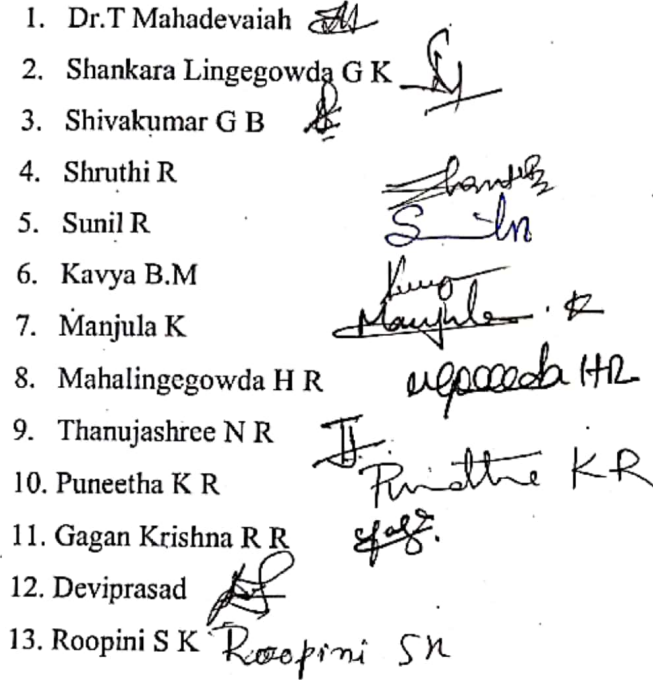 1. Dr.T Mahadevaiah
2. Shankara Lingegowda G K
3. Shivakumar G B
4. Shruthi R
5. Sunil R
6. Kavya B.M
7. Manjula K Manjula . K
8. Mahalingegowda H R HR
9. Thanujashree N R
10. Puneetha K R K R
11. Gagan Krishna R R
12. Deviprasad
13. Roopini S K Roopini S K